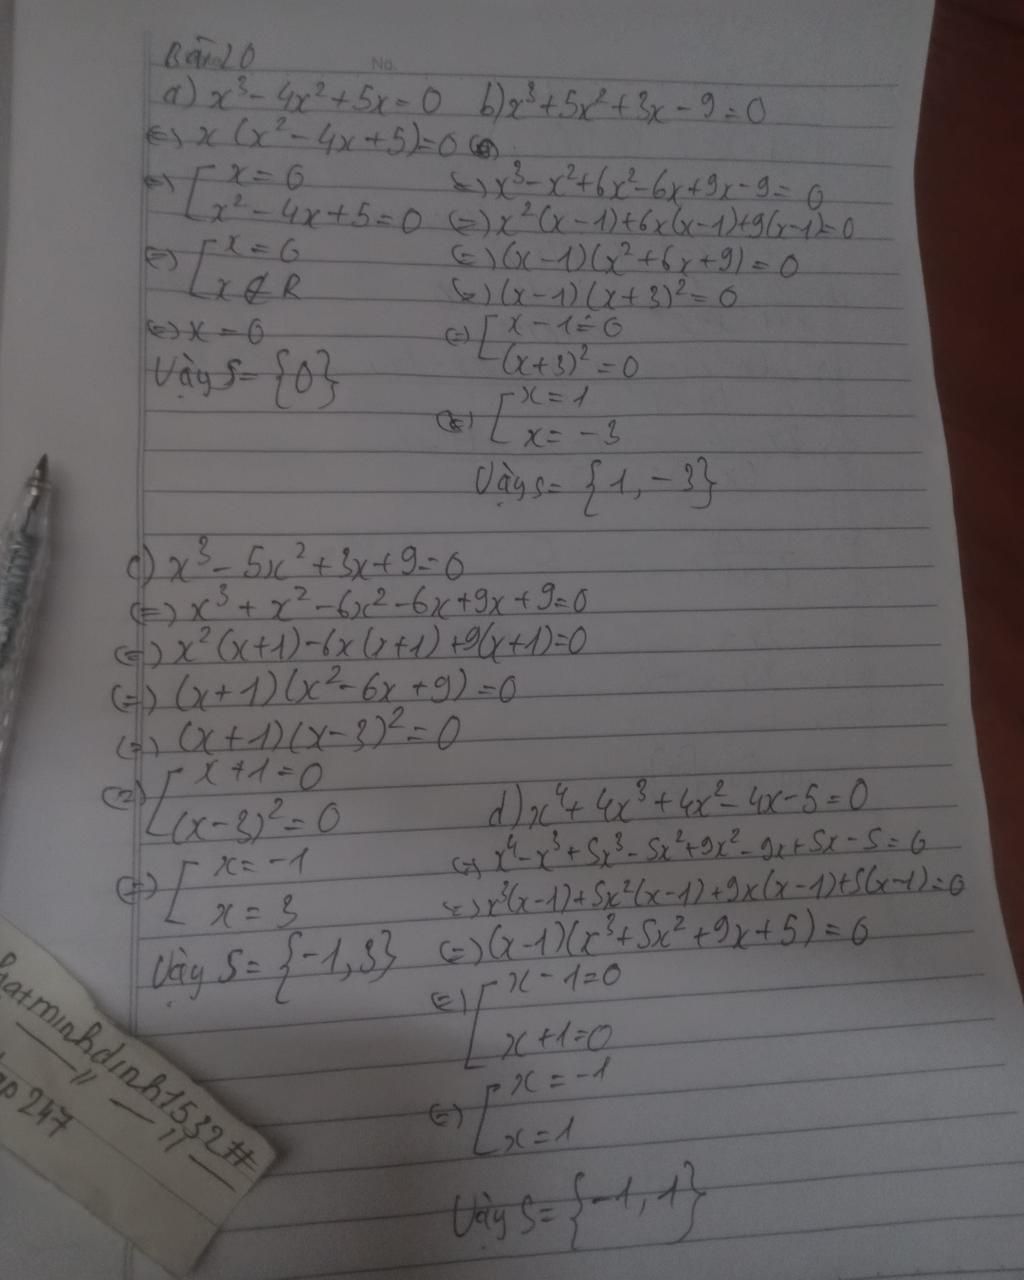 Bài 20
No.
a) x³ - 4x² + 5x = 0
⇔ x(x² - 4x + 5) = 0
⇔ [ x = 0
x² - 4x + 5 = 0
⇔ [ x = 0
x ∉ R
⇔ x = 0
Vậy S = {0}
b) x³ + 5x² + 3x - 9 = 0
⇔ x³ - x² + 6x² - 6x + 9x - 9 = 0
⇔ x²(x - 1) + 6x(x - 1) + 9(x - 1) = 0
⇔ (x - 1)(x² + 6x + 9) = 0
⇔ (x - 1)(x + 3)² = 0
⇔ [ x - 1 = 0
(x + 3)² = 0
⇔ [ x = 1
x = -3
Vậy S = {1, -3}
c) x³ - 5x² + 3x + 9 = 0
⇔ x³ + x² - 6x² - 6x + 9x + 9 = 0
⇔ x²(x + 1) - 6x(x + 1) + 9(x + 1) = 0
⇔ (x + 1)(x² - 6x + 9) = 0
⇔ (x + 1)(x - 3)² = 0
⇔ [ x + 1 = 0
(x - 3)² = 0
⇔ [ x = -1
x = 3
Vậy S = {-1, 3}
d) x⁴ + 4x³ + 4x² - 4x - 5 = 0
⇔ x⁴ - x³ + 5x³ - 5x² + 9x² - 9x + 5x - 5 = 0
⇔ x³(x - 1) + 5x²(x - 1) + 9x(x - 1) + 5(x - 1) = 0
⇔ (x - 1)(x³ + 5x² + 9x + 5) = 0
⇔ [ x - 1 = 0
x + 1 = 0
⇔ [ x = -1
x = 1
Vậy S = {-1, 1}
hatminhdinh1532#
247